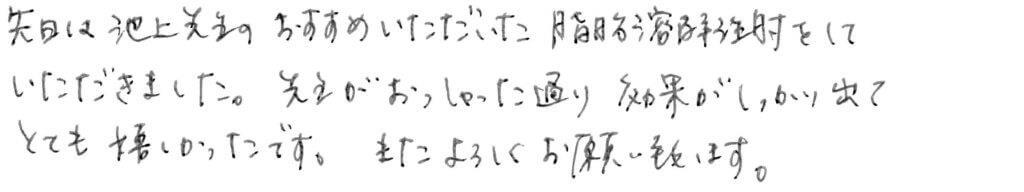 先日は池上先生のおすすめいただいた脂肪溶解注射をして
いただきました。先生がおっしゃった通り効果がしっかり出て
とても嬉しかったです。またよろしくお願い致します。